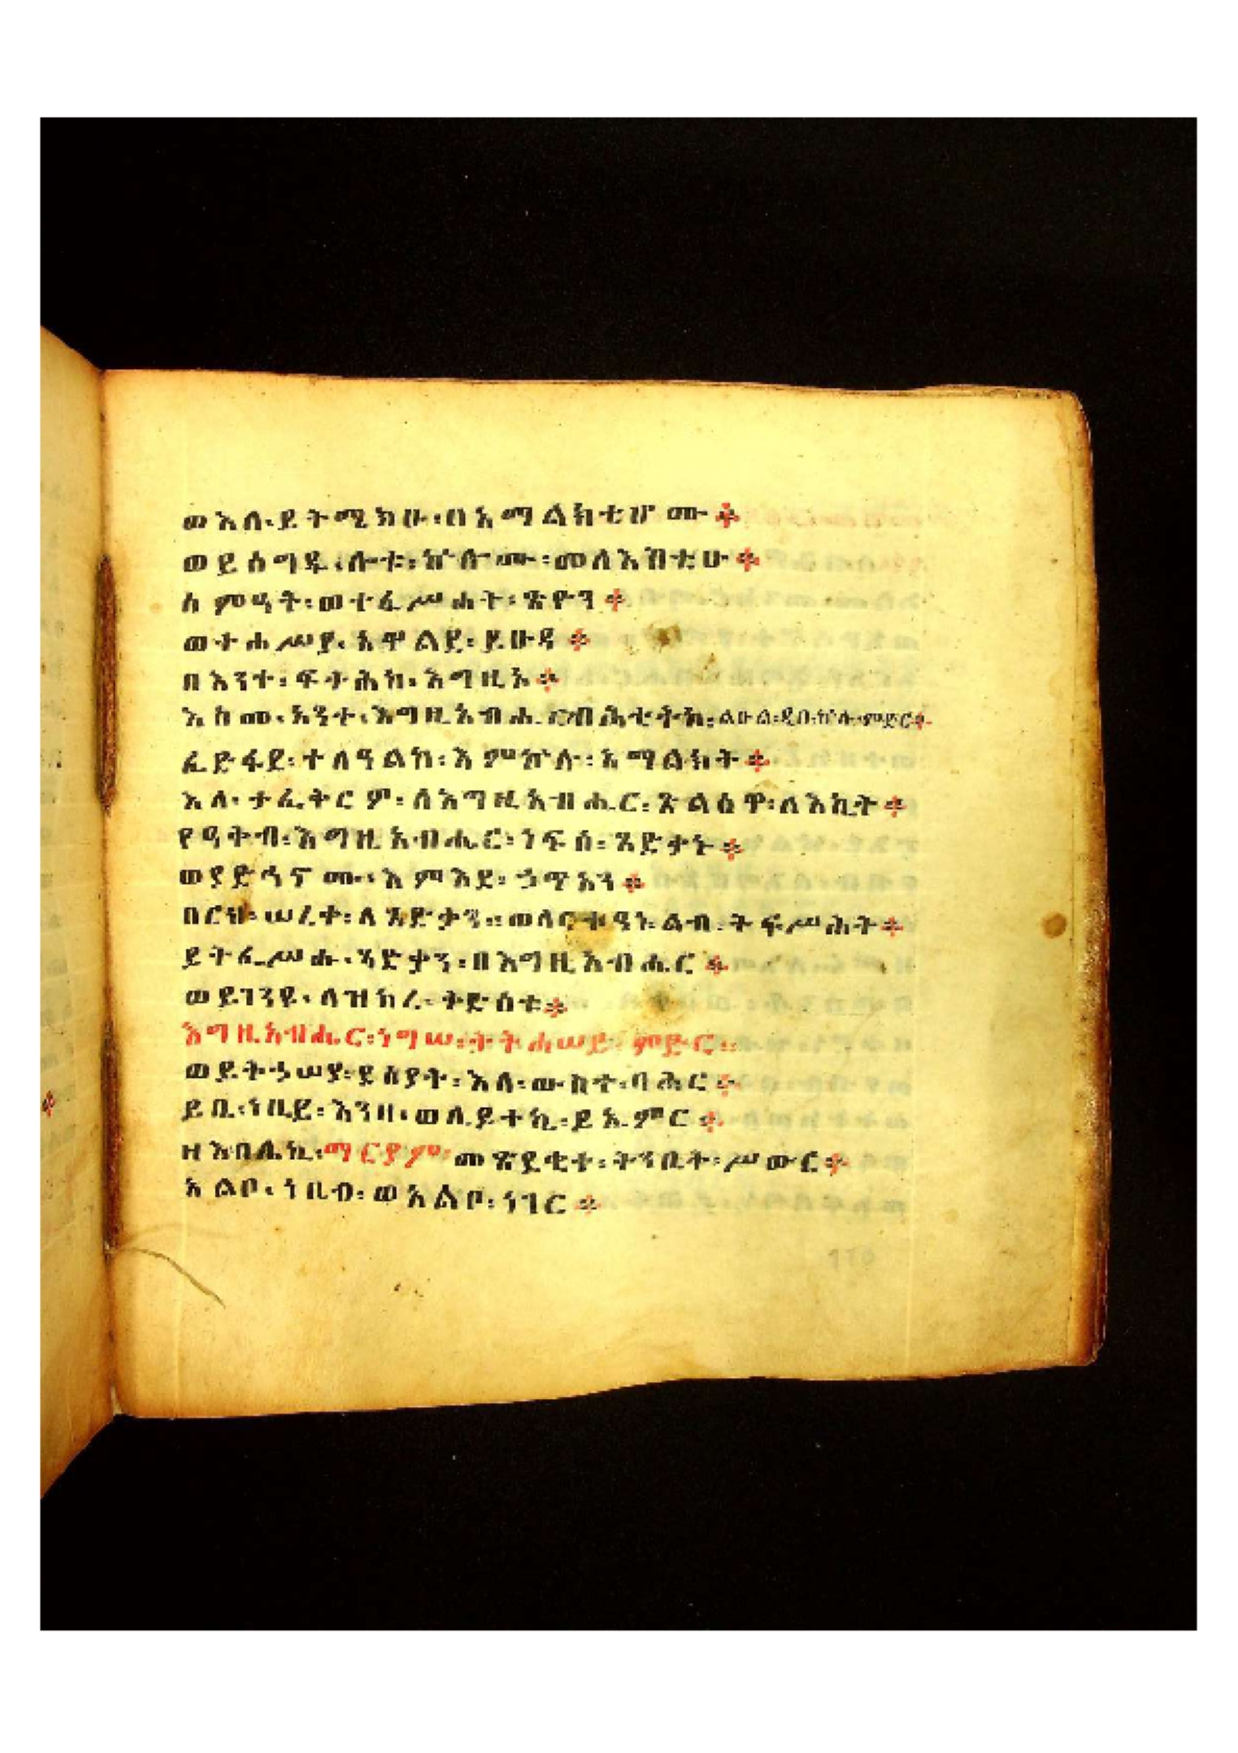 ወእለ፡ይትሜክሁ፡በአማልክቲሆሙ፨
ወይሰግዱ፡ሎቱ፡ኵሎሙ፡መላእክቲሁ፨
ሰምዓት፡ወተፈሥሐት፡ጽዮን፨
ወተሐሥያ፡አዋልደ፡ይሁዳ፨
በእንተ፡ፍትሕከ፡እግዚኦ፨
እስመ፡አንተ፡እግዚአብሔር፡ባሕቲትከ፡ልዑል፡ዲበ፡ኵሉ፡ምድር፨
ፈድፋደ፡ተለዓልከ፡እምኵሉ፡አማልክት፨
እለ፡ታፈቅርዎ፡ለእግዚአብሔር፡ጽልዕዋ፡ለእኪት፨
የዓቅብ፡እግዚአብሔር፡ነፍሰ፡ጻድቃኑ፨
ወያድኅኖሙ፡እምእደ፡ኃጥአን፨
በርህ፡ሠረቀ፡ለጻድቃን፡፡ወለርቱዓነ፡ልብ፡ትፍሥሕት፨
ይትፌሥሑ፡ጻድቃን፡በእግዚአብሔር፨
ወይገንዩ፡ለዝክረ፡ቅድሳቱ፨
እግዚአብሔር፡ነግሠ፡ትትሐሠይ፡ምድር፡፡
ወይትኃሠያ፡ደሰያት፡እለ፡ውስተ፡ባሕር፨
ይቤ፡ነቢይ፡እንዘ፡ወሊዶተኪ፡ይኤምር፨
ዘእበሌኪ፡ማርያም፡መጽደቂተ፡ትንቢት፡ሥውር፨
አልቦ፡ነቢብ፡ወአልቦ፡ነገር፨